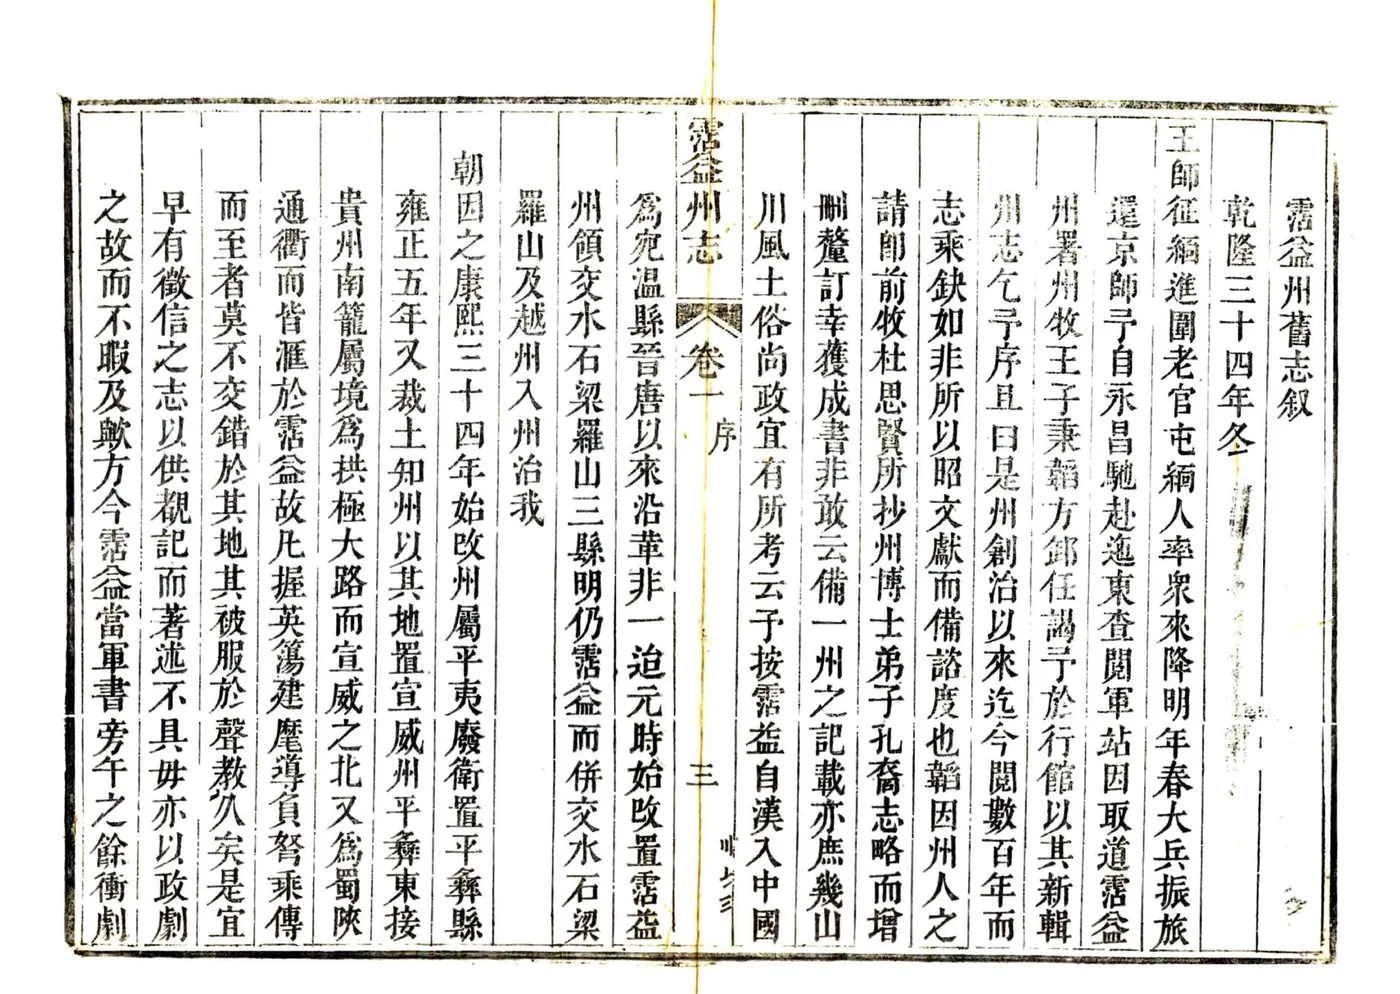 霑益州舊志叙
乾隆三十四年冬
王師征緬進圍老官屯緬人率衆來降明年春大兵振旅
還京師予自永昌馳赴迤東查閱軍站因取道霑益
州署州牧王子秉韜方卸任謁予於行館以其新輯
州志乞予序且曰是州創治以來迄今閱數百年而
志乘缺如非所以昭文獻而備諮度也韜因州人之
請卽前牧杜思賢所抄州博士弟子孔裔志略而增
刪釐訂幸獲成書非敢云備一州之記載亦庶幾山
川風土俗尚政宜有所考云予按霑益自漢入中國
霑益州志
卷一
序
三
爲宛溫縣晉唐以來沿革非一迨元時始改置霑益
州領交水石梁羅山三縣明仍霑益而併交水石梁
羅山及越州入州治我
朝因之康熙三十四年始改州屬平夷廢衛置平彝縣
雍正五年又裁土知州以其地置宣威州平彝東接
貴州南籠屬境爲拱極大路而宣威之北又爲蜀陝
通衢而皆滙於霑益故凡握英蕩建麾導負弩乘傳
而至者莫不交錯於其地其被服於聲教久矣是宜
早有徵信之志以供覩記而著述不具毋亦以政劇
之故而不暇及歟方今霑益當軍書旁午之餘衝劇